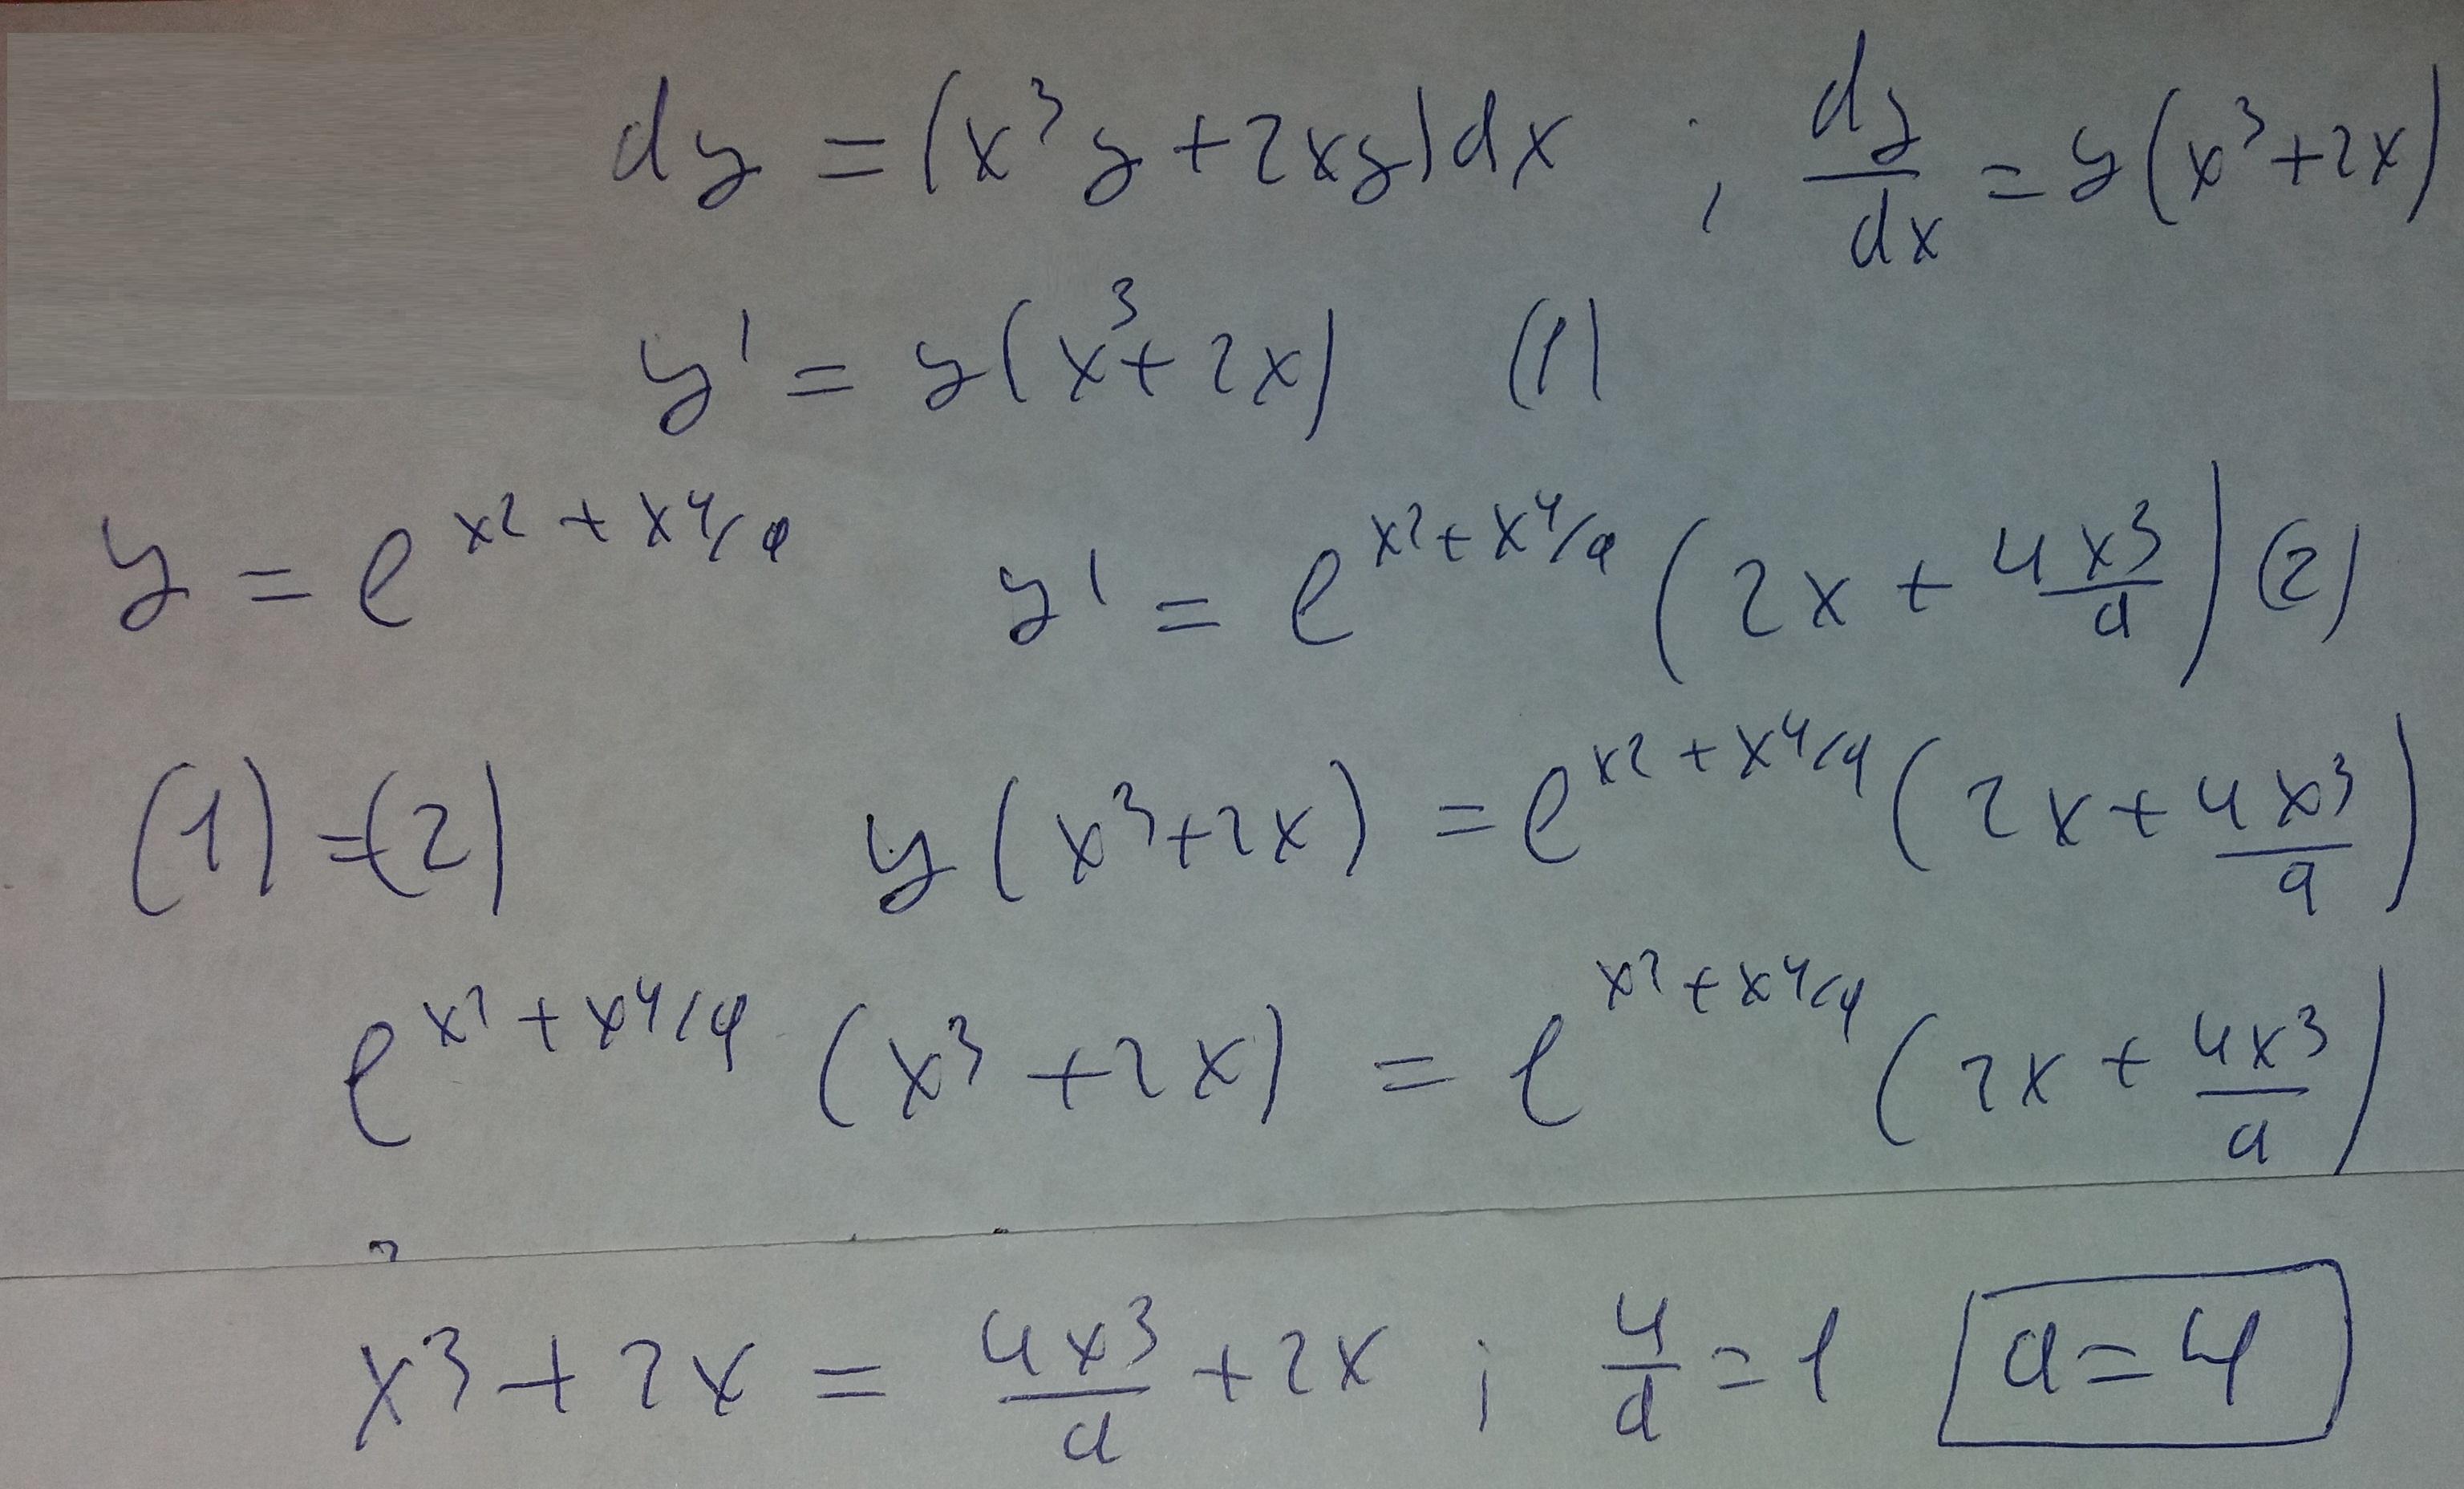 dy = (x³y + 2xy)dx ; dy/dx = y(x³+2x)
y' = y(x³+2x) (1)
y = e^(x²+x⁴/a) y' = e^(x²+x⁴/a) (2x + 4x³/a) (2)
(1) = (2) y(x³+2x) = e^(x²+x⁴/a) (2x + 4x³/a)
e^(x²+x⁴/a) (x³+2x) = e^(x²+x⁴/a) (2x + 4x³/a)
x³+2x = 4x³/a + 2x ; 4/a = 1 a=4